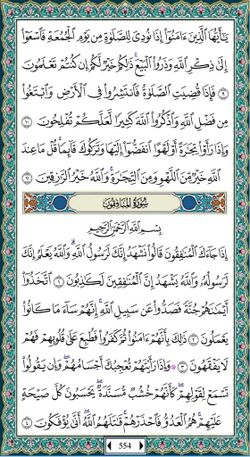 يَٰٓأَيُّهَا ٱلَّذِينَ ءَامَنُوٓا۟ إِذَا نُودِىَ لِلصَّلَوٰةِ مِن يَوْمِ ٱلْجُمُعَةِ فَٱسْعَوْا۟
إِلَىٰ ذِكْرِ ٱللَّهِ وَذَرُوا۟ ٱلْبَيْعَ ۚ ذَٰلِكُمْ خَيْرٌ لَّكُمْ إِن كُنتُمْ تَعْلَمُونَ
٩ فَإِذَا قُضِيَتِ ٱلصَّلَوٰةُ فَٱنتَشِرُوا۟ فِى ٱلْأَرْضِ وَٱبْتَغُوا۟
مِن فَضْلِ ٱللَّهِ وَٱذْكُرُوا۟ ٱللَّهَ كَثِيرًا لَّعَلَّكُمْ تُفْلِحُونَ ١٠
وَإِذَا رَأَوْا۟ تِجَٰرَةً أَوْ لَهْوًا ٱنفَضُّوٓا۟ إِلَيْهَا وَتَرَكُوكَ قَآئِمًا ۚ قُلْ مَا عِندَ
ٱللَّهِ خَيْرٌ مِّنَ ٱللَّهْوِ وَمِنَ ٱلتِّجَٰرَةِ ۚ وَٱللَّهُ خَيْرُ ٱلرَّٰزِقِينَ ١١
سُورَةُ المُنَافِقُونَ
بِسْمِ ٱللَّهِ ٱلرَّحْمَٰنِ ٱلرَّحِيمِ
إِذَا جَآءَكَ ٱلْمُنَٰفِقُونَ قَالُوا۟ نَشْهَدُ إِنَّكَ لَرَسُولُ ٱللَّهِ ۗ وَٱللَّهُ يَعْلَمُ إِنَّكَ
لَرَسُولُهُۥ وَٱللَّهُ يَشْهَدُ إِنَّ ٱلْمُنَٰفِقِينَ لَكَٰذِبُونَ ١ ٱتَّخَذُوٓا۟
أَيْمَٰنَهُمْ جُنَّةً فَصَدُّوا۟ عَن سَبِيلِ ٱللَّهِ ۚ إِنَّهُمْ سَآءَ مَا كَانُوا۟
يَعْمَلُونَ ٢ ذَٰلِكَ بِأَنَّهُمْ ءَامَنُوا۟ ثُمَّ كَفَرُوا۟ فَطُبِعَ عَلَىٰ قُلُوبِهِمْ فَهُمْ
لَا يَفْقَهُونَ ٣ ۞ وَإِذَا رَأَيْتَهُمْ تُعْجِبُكَ أَجْسَامُهُمْ ۖ وَإِن يَقُولُوا۟
تَسْمَعْ لِقَوْلِهِمْ ۖ كَأَنَّهُمْ خُشُبٌ مُّسَنَّدَةٌ ۖ يَحْسَبُونَ كُلَّ صَيْحَةٍ
عَلَيْهِمْ ۚ هُمُ ٱلْعَدُوُّ فَٱحْذَرْهُمْ ۚ قَٰتَلَهُمُ ٱللَّهُ ۖ أَنَّىٰ يُؤْفَكُونَ ٤
554